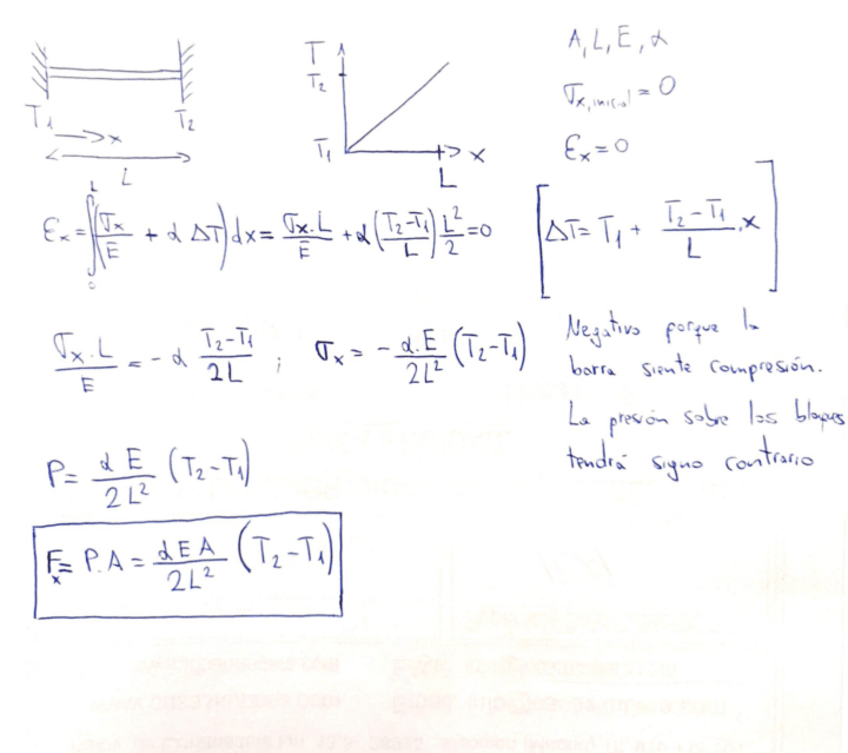 A, L, E, α
σx,inicial = 0
εx = 0
T1
T2
→ x
L
T
T2
T1
x
L
εx = ∫₀ᴸ (σx/E + α ΔT) dx = σx.L/E + α ((T2-T1)/L) L²/2 = 0
[ΔT = T1 + (T2-T1)/L . x]
σx.L/E = -α (T2-T1)/2L ; σx = - α.E/2L² (T2-T1)
Negativo porque la
barra siente compresión.
La presión sobre los bloques
tendrá signo contrario
P = α E/2L² (T2-T1)
Fx = P.A = α E A/2L² (T2-T1)